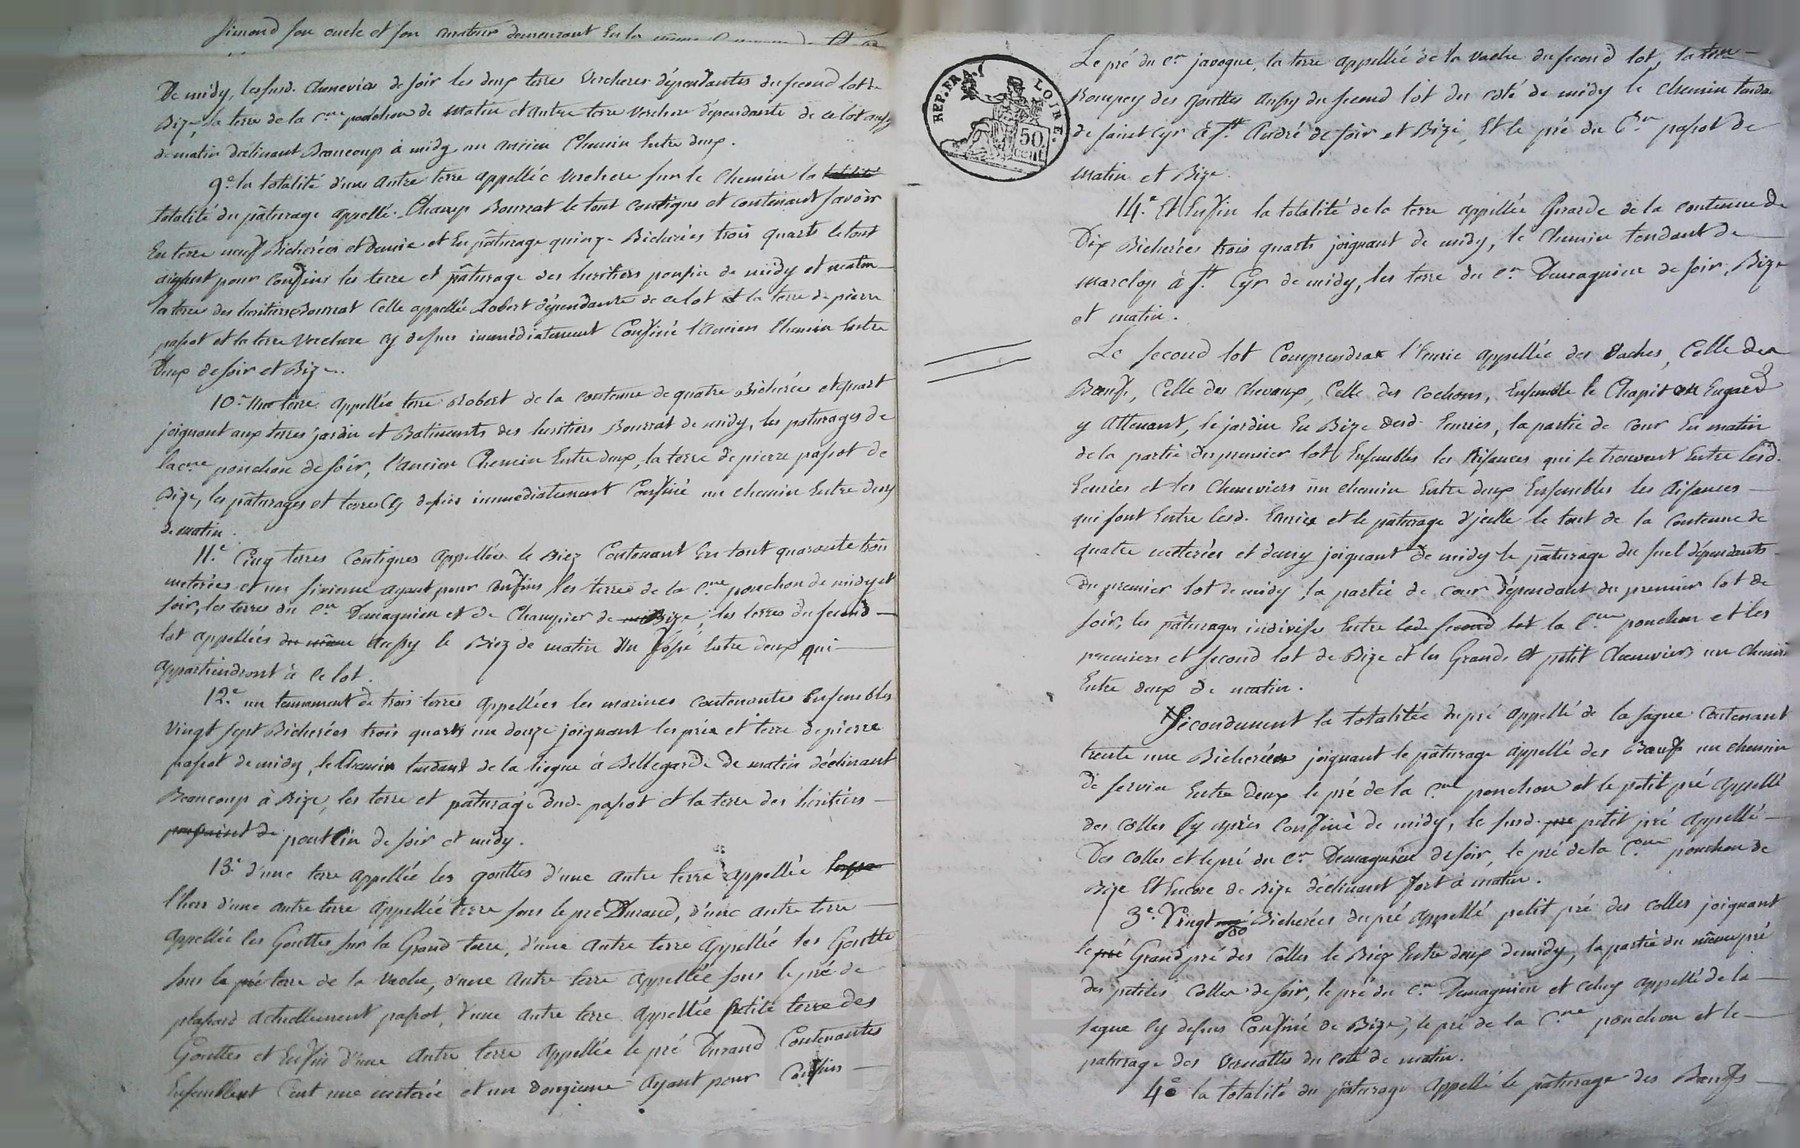 Simond son oncle et son
De midy, lesusd. Chenevier de soir les deux terres Vercheres dépendantes du second lot de
Bize, la terre de la Cne ponchon de Matin et autre terre Verchere dépendante de ce lot aussy
de matin déclinant Beaucoup à midy un ancien Chemin Entre deux.
9.e la totalité d'une autre terre appellée Verchere sur le Chemin la totalité
totalité du pâturage appellé Champ Bourrat le tout contigue et contenant savoir
En terre neuf Bicherées et demie et En pâturage quinze Bicherées trois quarts le tout
ayant pour confins les terre et pâturage des heritiers de midy et matin
la terre des heritiers Bourrat Celle appellée Robert dépendante de ce lot et la terre de pierre
papot et la terre Verchere cy dessus immédiatement Confiné l'ancien Chemin Entre
Deux de soir et Bize.
10.e Une terre appellée terre Robert de la contenue de quatre Bicherées et quart
joignant aux terres jardin et Batiments des heritiers Bourrat de midy, les pâturages de
la Cne ponchon de soir, l'ancien Chemin Entre deux, la terre de pierre papot de
Bize, les pâturages et terre Cy dessus immédiatement Confiné un chemin Entre deux
de matin.
11.e Cinq terres Contigues appellées le Biez Contenant En tout quarante trois
meterées et un sixieme ayant pour confins les terres de la C.ne ponchon de midy et
soir, les terres du C.en Demagnieu et de Champier de Bize, les terres du second
lot appellées du même aussy le Biez de matin Un fossé Entre deux qui
appartiendront à ce lot.
12.e un tennement de trois terres appellées les marines contenantes Ensembles
Vingt sept Bicherées trois quarts un douze joignant les prés et terre de pierre
papot de midy, le Chemin tendant de la liegue à Bellegarde de matin déclinant
Beaucoup à Bize, les terre et pâturage dud. papot et la terre des héritiers
de soir et midy.
13.e d'une terre appellée les gouttes d'une autre terre appellée
d'une autre terre appellée terre sous le pré Durand, d'une autre terre
appellée les Gouttes sur la Grand terre, d'une autre terre appellée les Goutte
sous la pré terre de la Vache, d'une autre terre appellée sous le pré de
actuellement papot, d'une autre terre appellée petite terre des
Gouttes et Enfin d'une autre terre appellée le pré Durand Contenantes
Ensemblent Cent une meterée et un douzieme ayant pour Confins
REP. FRA. LOIRE.
50 CENT
Le pré du C.en javogue, la terre appellée de la Vache du second lot, la terre
Rompey des gouttes aussy du second lot du coté de midy le chemin tendant
de saint Cyr à St. André de soir et Bize, Et le pré du C.en papot de
matin et Bize.
14.e Et Enfin la totalité de la terre appellée Girarde de la contenue de
Dix Bicherées trois quarts joignant de midy, le Chemin tendant de
marclop à St. Cyr de midy, les terre du C.en Demagnieu de soir, Bize
et matin.
Le second lot Comprendra l'Ecurie appellée des Vaches, Celle des
Bœufs, Celle des Chevaux, Celle des Cochons, Ensemble le Chapit ou Engard
y attenant, le jardin En Bize desd. Ecuries, la partie de cour En matin
de la partie du premier lot, Ensembles les aisances qui se trouvent Entre lesd.
Ecuries et les Cheneviers un chemin Entre deux Ensembles les aisances
qui sont Entre lesd. Ecuries et le pâturage d'icelle le tout de la Contenue de
quatre meterées et demy joignant de midy le pâturage du dépendants
du premier lot de midy, la partie de cour dépendant du premier lot de
soir, les pâturages indivise Entre led second lot la C.ne ponchon et les
premiers et second lot de Bize et les Grands et petit Cheneviers un chemin
Entre deux de matin.
Sécondement la totalitée du pré appellé de la sagne contenant
trente une Bicherées joignant le pâturage appellé des Bœufs un chemin
de service Entre deux le pré de la C.ne ponchon et le petit pré appellé
des colles Cy après Confiné de midy, le susd. pre petit pré appellé
Des colles et le pré du C.en Demagnieu de soir, le pré de la C.ne ponchon de
Bize Et Encore de Bize déclinant fort à matin.
3.e Vingt Bicherées du pré appellé petit pré des colles joignant
le pré Grand pré des Colles le Biez Entre deux de midy, la partie du même pré
des petites Colles de soir, le pré du C.en Demagnieu et celuy appellé de la
sagne Cy dessus Confiné de Bize, le pré de la C.ne ponchon et le
paturage des vernattes du coté de matin.
4.e la totalité du pâturage appellé le pâturage des Bœufs